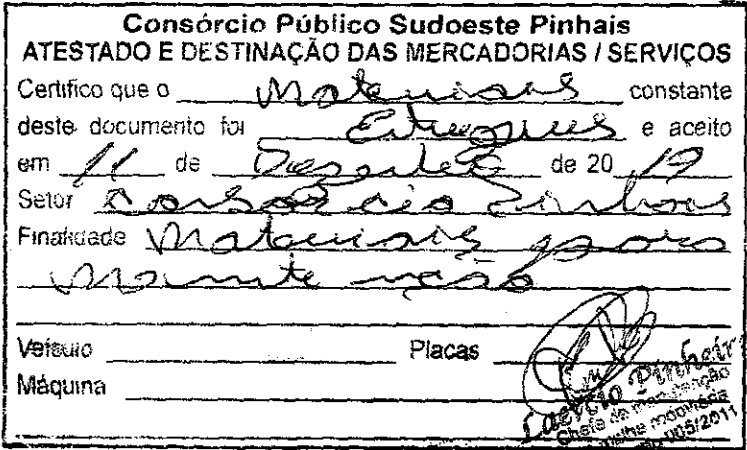 Consórcio Público Sudoeste Pinhais
ATESTADO E DESTINAÇÃO DAS MERCADORIAS / SERVIÇOS
Certifico que o Materiais constante
deste documento foi Entregues e aceito
em 11 de Dezembro de 2019
Setor Consórcio Pinhais
Finalidade Materiais para
Manutenção
Veículo Placas
Máquina
Laercio Pinheir
Chefe de manutenção
005/2011